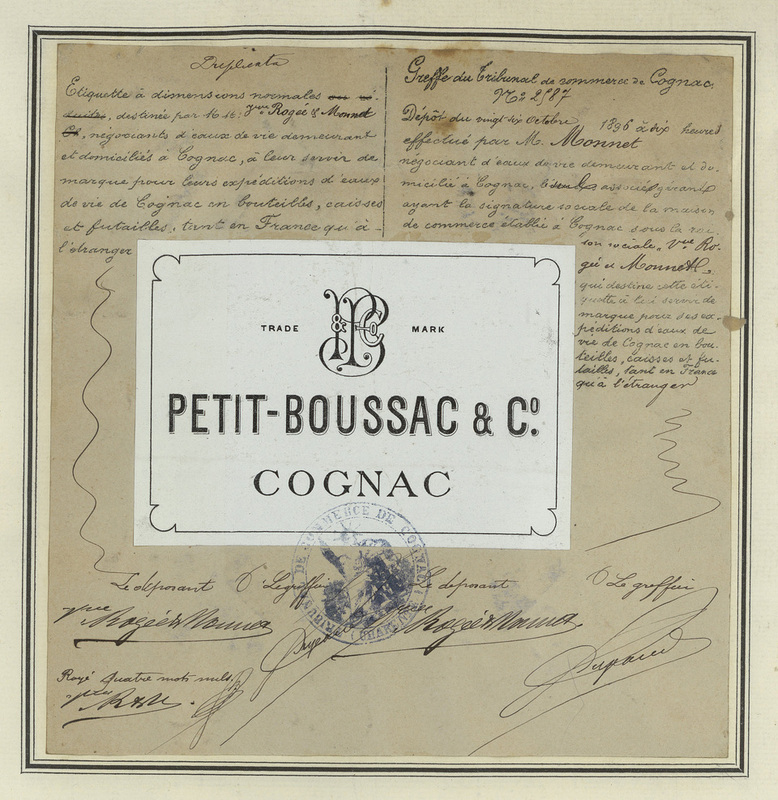 Duplicata
Etiquette à dimensions normales ou ré-
duites, destinée par M.M. Vve Rogée & Monnet
Co, négociants d'eaux de vie demeurant
et domiciliés à Cognac, à leur servir de
marque pour leurs expéditions d'eaux
de vie de Cognac en bouteilles, caisses
et futailles, tant en France qu'à
l'étranger
Greffe du Tribunal de commerce de Cognac.
No 2587
Dépôt du vingt six Octobre 1896 à six heures
effectué par M. Monnet
négociant d'eaux de vie demeurant et do-
micilié à Cognac, le seul associé gérant
ayant la signature sociale de la maison
de commerce établie à Cognac sous la rai-
son sociale, Vve Ro-
gée et Monnet,
qui destine cette éti-
quette à lui servir de
marque pour ses ex-
péditions d'eaux de
vie de Cognac en bou-
teilles, caisses et fu-
tailles, tant en France
qu'à l'étranger
TRADE MARK
P&BCo
PETIT-BOUSSAC & Co.
COGNAC
TRIBUNAL DE COMMERCE DE COGNAC
Le déposant Le greffier Le déposant Le greffier
Vve Rogée & Monnet Vve Rogée & Monnet
Rayé quatre mots nuls.
Vve R & M